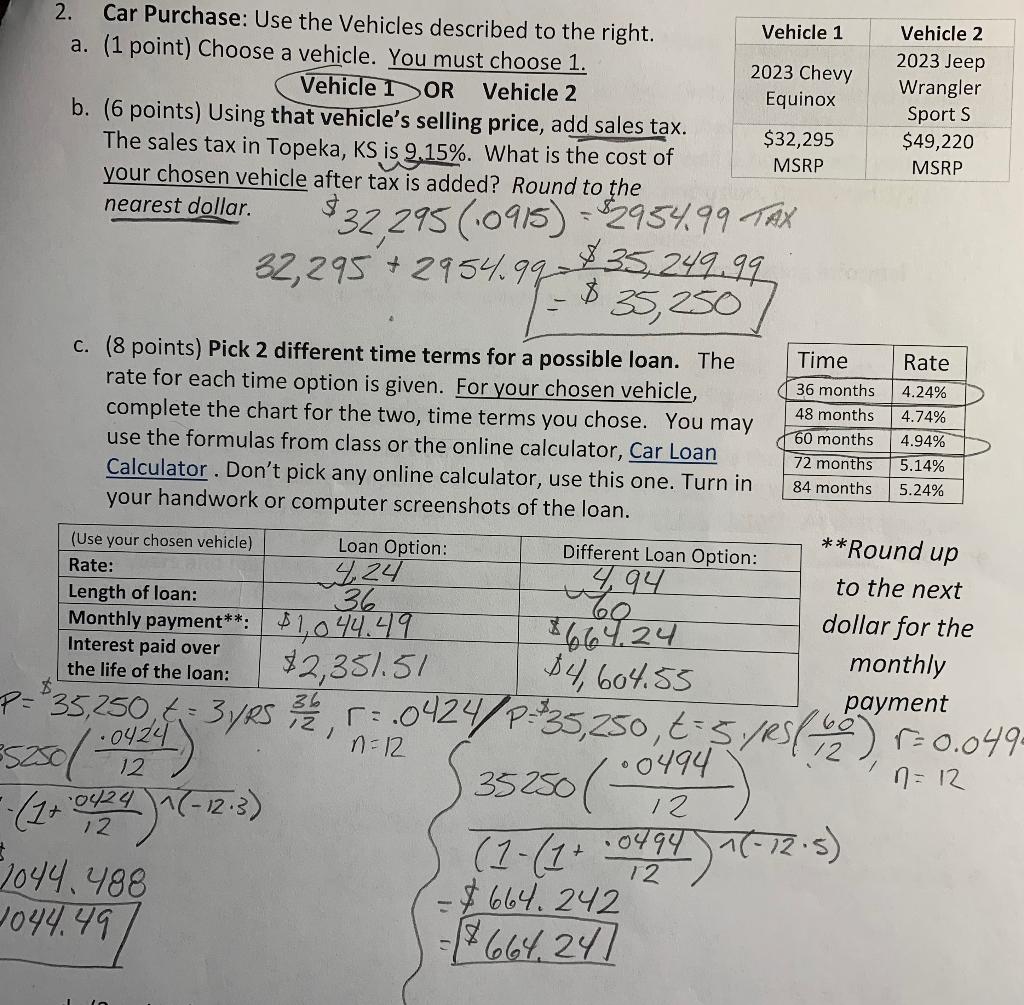 2. Car Purchase: Use the Vehicles described to the right.
a. (1 point) Choose a vehicle. You must choose 1.
Vehicle 1 OR Vehicle 2
b. (6 points) Using that vehicle's selling price, add sales tax.
The sales tax in Topeka, KS is 9.15%. What is the cost of
your chosen vehicle after tax is added? Round to the
nearest dollar.
Vehicle 1 Vehicle 2
2023 Chevy Equinox 2023 Jeep Wrangler Sport S
$32,295 MSRP $49,220 MSRP
$32,295 (.0915) = $2954.99 TAX
32,295 + 2954.99 = $35,249.99
= $35,250
c. (8 points) Pick 2 different time terms for a possible loan. The
rate for each time option is given. For your chosen vehicle,
complete the chart for the two, time terms you chose. You may
use the formulas from class or the online calculator, Car Loan
Calculator . Don't pick any online calculator, use this one. Turn in
your handwork or computer screenshots of the loan.
Time Rate
36 months 4.24%
48 months 4.74%
60 months 4.94%
72 months 5.14%
84 months 5.24%
(Use your chosen vehicle) Loan Option: Different Loan Option:
Rate: 4.24 4.94
Length of loan: 36 60
Monthly payment**: $1,044.49 $664.24
Interest paid over
the life of the loan: $2,351.51 $4,604.55
**Round up
to the next
dollar for the
monthly
payment
P=$35,250, t=3 yrs 36/12, r=.0424
n=12
35250(.0424/12)
-(1+.0424/12)^(-12·3)
$1044.488
1044.49
P=$35,250, t=5 yrs(60/12), r=0.049
n=12
35250(.0494/12)
(1-(1+.0494/12)^(-12·5)
=$664.242
=$664.24